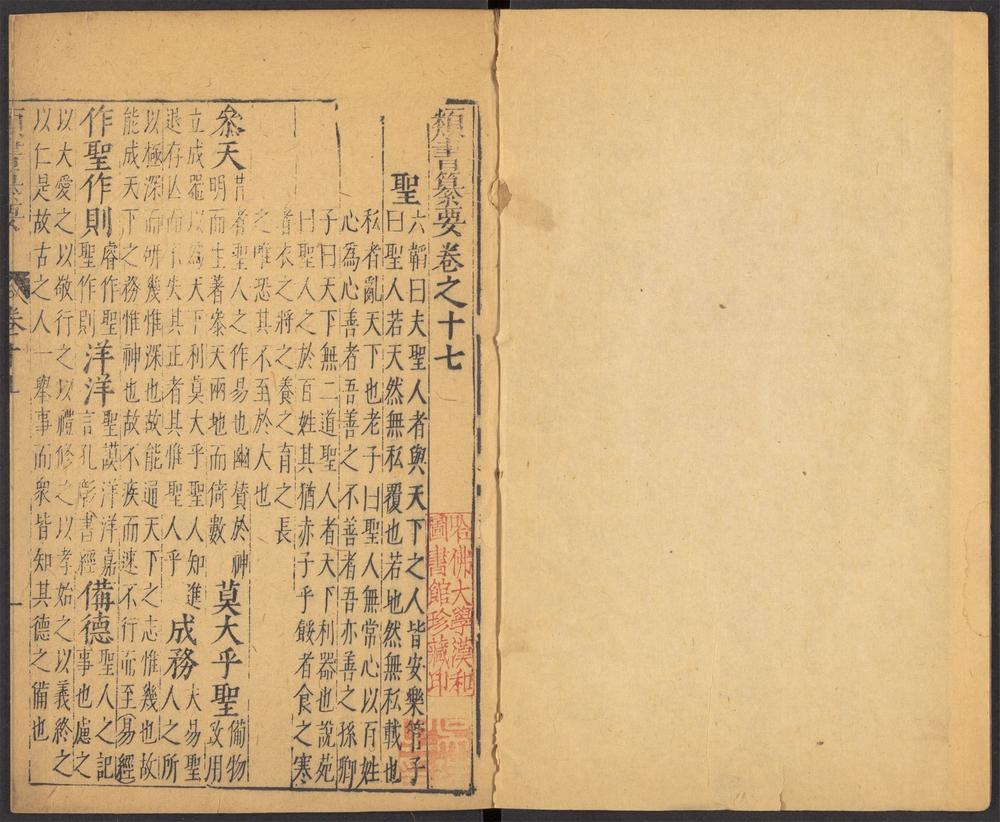 類書纂要卷之十七
聖
六韜曰夫聖人者與天下之人皆安樂管子
曰聖人若天然無私覆也若地然無私載也
私者亂天下也老子曰聖人無常心以百姓
心為心善者吾善之不善者吾亦善之孫卿
子曰天下無二道聖人者天下利器也說苑
曰聖人之於百姓其猶赤子乎餒者食之寒
者衣之將之養之育之長
之唯恐其不至於大也
叅天
昔者聖人之作易也幽贊於神
明而生蓍叅天兩地而倚數
莫大乎聖
備物
致用
立成器以為天下利莫大乎聖人知進
退存亡而不失其正者其惟聖人乎
成務
夫易聖
人之所
以極深而研幾惟深也故能通天下之志惟幾也故
能成天下之務惟神也故不疾而速不行而至易經
作聖作則
睿作聖
聖作則
洋洋
聖謨洋洋嘉
言孔彰書經
備德
聖人之記
事也慮之
以大愛之以敬行之以禮修之以孝始之以義終之
以仁是故古之人一舉事而衆皆知其德之備也
類書纂要
卷之十七
一
哈佛大學漢和
圖書館珍藏印